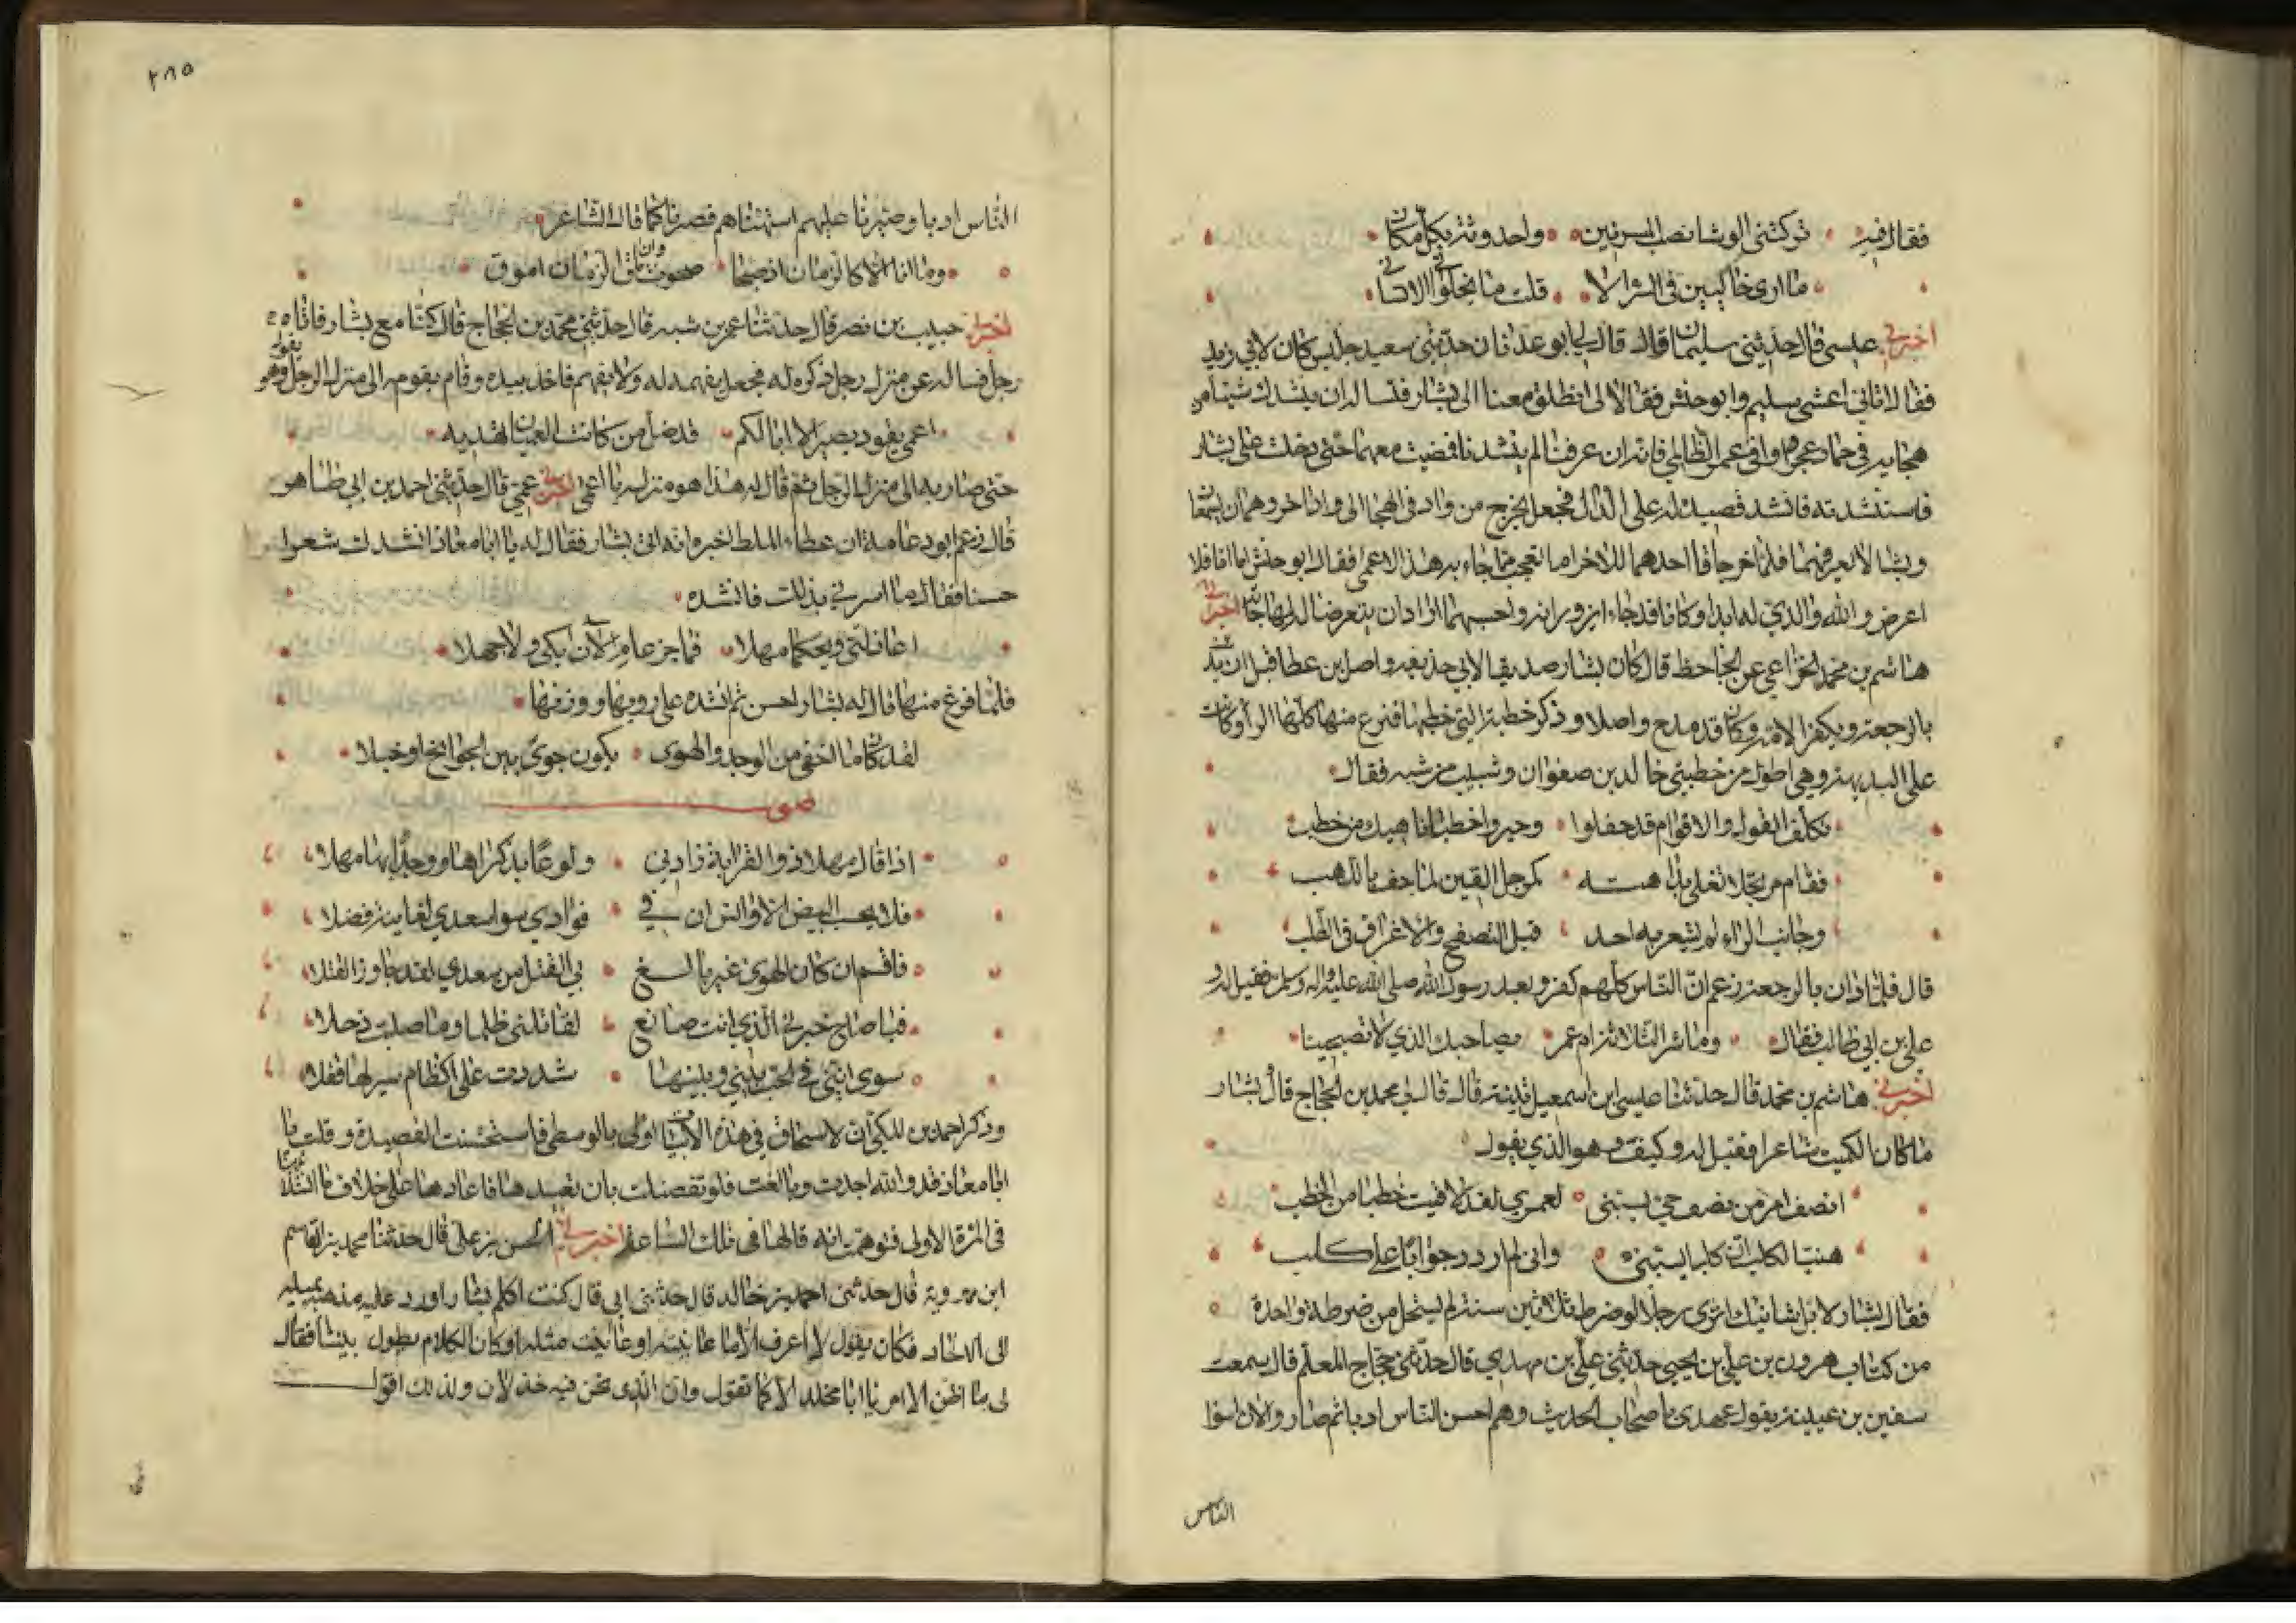 فقال فيه تركتني الوشاة نصب المسرفين واحدوثة بكل مكان
ما ارى خاليين في السر الا قلت ما يخلوان الا لشاني
اخبرني عيسى قال حدثني سليمان قال قال لي ابو عدنان حدثني سعيد جليس كان لابي زيد
فقال اتاني اعشى سليم وابو حنش فقالا لي انطلق معنا الى بشار فتساله ان ينشدك شيئا من
هجايه في حماد عجرد او في عمرو الظالمي فانه ان عرفنا لم ينشدنا فمضيت معهما حتى دخلت على بشار
فاستنشدته فانشد قصيدة له على الدال فجعل يخرج من واد في الهجا الى واد اخر وهما يسمعان
وبشار لا يعرفهما فلما خرجا قال احدهما للاخر اما تعجب مما جاء به هذا الاعمى فقال ابو حنش اما انا فلا
اعرض والله والدي له ابدا وكانا قد جاءا يزورانه واحسبهما ارادا ان يتعرضا لمهاجاته اخبرني
هاشم بن محمد الخزاعي عن الجاحظ قال كان بشار صديقا لابي حذيفه واصل بن عطا قبل ان يدين
بالرجعة ويكفر الامة وكان قد مدح واصلا وذكر خطبته التي خطبها فنزع منها كلها الراء وكانت
على البديهة وهي اطول من خطبتي خالد بن صفوان وشبيب بن شبه فقال
تكلف القول والاقوام قد حفلوا وحبروا خطبا ناهيك من خطب
فقام مرتجلا تغلي بداهته كمرجل القين لما حف باللهب
وجانب الراء لم يشعر به احد قبل التصفح والاغراق في الطلب
قال فلما دان بالرجعة زعم ان الناس كلهم كفروا بعد رسول الله صلى الله عليه واله وسلم فقيل له و
علي بن ابي طالب فقال وما شر الثلاثة ام عمر بصاحبك الذي لا تصبحينا
اخبرني هاشم بن محمد قال حدثنا عيسى ابن اسمعيل تينة قال قال لي محمد بن الحجاج قال بشار
ما كان الكميت شاعرا فقيل له وكيف وهو الذي يقول
انصف امر من نصف حي يسبني لعمري لقد لاقيت خطبا من الخطب
هنيا لكلب ان كلبا يسبني واني لم اردد جوابا على كلب
فقال بشار لا بل شانيك اترى رجلا لو ضرط ثلاثين سنة لم يستحل من ضرطه ضرطة واحدة
من كتاب هرون بن علي بن يحيى حدثني علي بن مهدي قال حدثني حجاج المعلم قال سمعت
سفين بن عيينة يقول عهدي باصحاب الحديث وهم احسن الناس ادبا ثم صاروا الان اسوا
الناس
٢٨٥
الناس ادبا وصبرنا عليهم اشبهناهم فصرنا كما قال الشاعر
وما انا الا كالزمان اذ صحا صحوت وان ماق الزمان اموق
اخبرنا حبيب بن نصر قال حدثنا عمر بن شبه قال حدثني محمد بن الحجاج قال كنا مع بشار فاتاه
رجل فساله عن منزل رجل ذكره له فجعل يفهمه له ولا يفهم فاخذ بيده وقام يقوده الى منزل الرجل وهو يقول
اعمى يقود بصيرا لا ابا لكم قد ضل من كانت العميان تهديه
حتى صار به الى منزل الرجل ثم قال له هذا هو منزله يا اعمى اخبرني عمي قال حدثني احمد بن ابي طاهر
قال زعم ابو دعامة ان عطاء الملط اخبره انه اتى بشار فقال له يا ابا معاذ انشدك شعرا
حسنا فقال ما اسرني بذلك فانشده
اعاذلتي ويحكما مهلا فما جزعا م الان ابكي ولا جهلا
فلما فرغ منها قال له بشار احسن ثم انشده على رويها ووزنها
لقد كان ما اخفى من الوجد والهوى يكون جوى بين الجوانح او خبلا
صوت
اذا قال مهلا ذو القرابة زادني ولوعا بذكراها ووجدا بها مهلا
فلا يحسب البيض الاوانس ان في فوادي سوا سعدي لغانية فضلا
فاقسم ان كان الهوى غير بالغ بي القتل من سعدي لقد جاوز القتلا
فيا صاح خبرني الذي انت صانع لقاتلتي ظلما وما صلت ذحلا
سوى انني في الحب بيني وبينها شددت على اكظام سر لها قفلا
وذكر احمد بن المكي ان لاسحاق في هذه الابيات اولى بالوسطى فاستحسنت القصيدة وقلت يا
ابا معاذ قد والله اجدت وبالغت فلو تفضلت بان تعيدها فاعادها على خلاف ما انشدنيها
في المرة الاولى فتوهمت انه قالها في تلك الساعة اخبرني الحسن بن علي قال حدثنا محمد بن القاسم
ابن مهرويه قال حدثني احمد بن خالد قال حدثني ابي قال كنت اكلم بشارا وارد عليه مذهبه بميله
الى الالحاد فكان يقول لا اعرف الا ما عاينته او عاينت مثله وكان الكلام يطول بيننا فقال
لي ما اظن الامر يا ابا مخلد الا كما تقول وان الذي نحن فيه خذلان ولذلك اقول